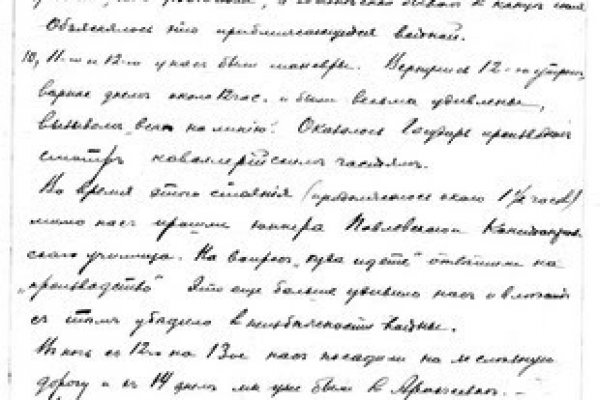 Объяснялось это приближающейся войной.
10, 11-го и 12-го у нас были маневры. Вернулись 12-го утром,
вернее днем около 12 час. и были весьма удивлены,
вызовом "всем на линию". Оказалось Государь производит
смотр кавалерийским частям.
Во время этого стояния (продолжалось около 1½ часов)
мимо нас прошли юнкера Павловского
ского училища. На вопрос "куда идете" отвѣтили на
"производство" Это еще больше удивило нас и
с тем убедило в неизбежности войны.
В ночь с 12го на 13ое нас посадили на железную
дорогу и в 14 днем мы уже были в